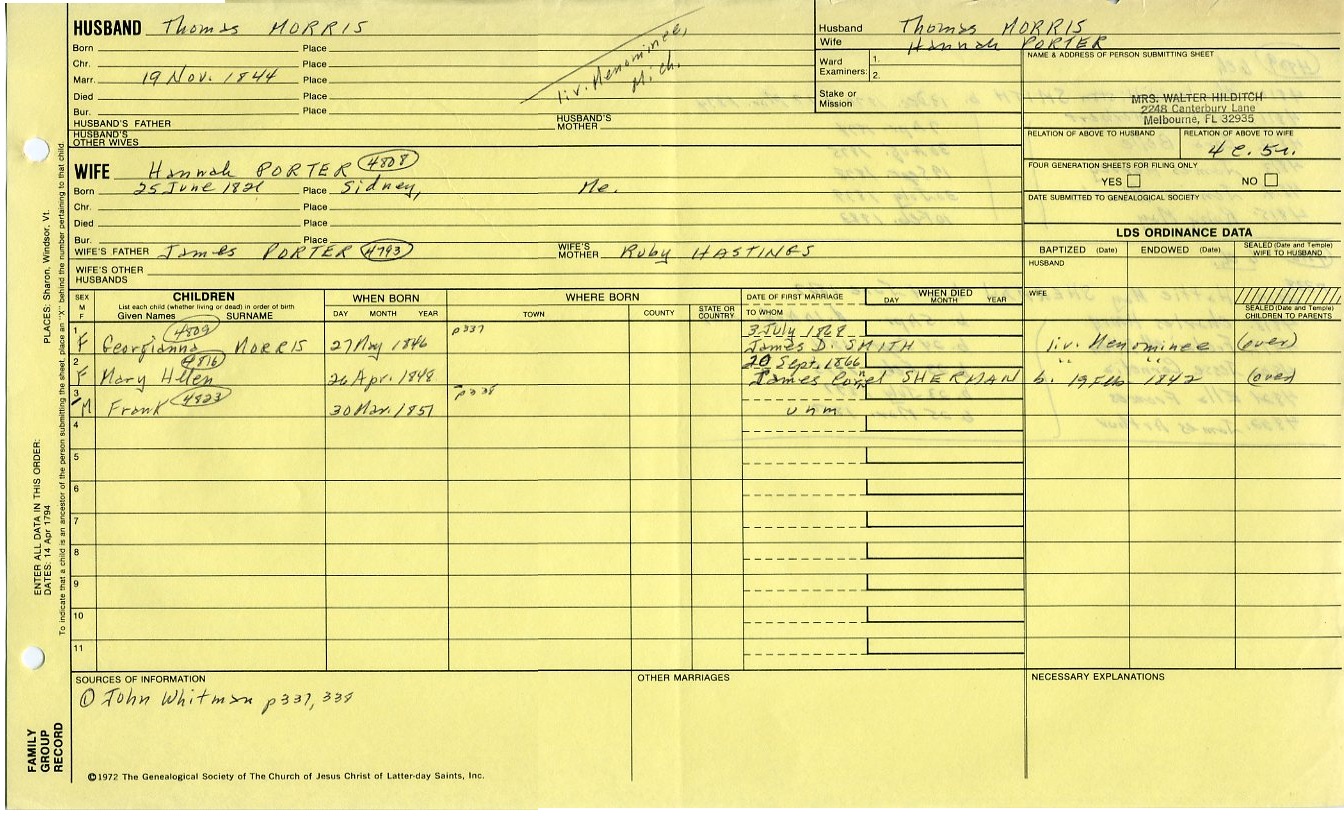 HUSBAND Thomas MORRIS
Born Place
Chr. Place
Marr. 19 Nov. 1844 Place
Died Place
Bur. Place
liv. Menominee, Mich.
HUSBAND'S FATHER
HUSBAND'S MOTHER
HUSBAND'S OTHER WIVES
Husband Thomas MORRIS
Wife Hannah PORTER
Ward Examiners: 1. 2.
Stake or Mission
NAME & ADDRESS OF PERSON SUBMITTING SHEET
MRS. WALTER HILDITCH
2248 Canterbury Lane
Melbourne, FL 32935
RELATION OF ABOVE TO HUSBAND
RELATION OF ABOVE TO WIFE
4c. 5r.
FOUR GENERATION SHEETS FOR FILING ONLY
YES NO
DATE SUBMITTED TO GENEALOGICAL SOCIETY
WIFE Hannah PORTER 4808
Born 25 June 1821 Place Sidney, Me.
Chr. Place
Died Place
Bur. Place
WIFE'S FATHER James PORTER 4793
WIFE'S MOTHER Ruby HASTINGS
WIFE'S OTHER HUSBANDS
LDS ORDINANCE DATA
BAPTIZED (Date) ENDOWED (Date) SEALED (Date and Temple) WIFE TO HUSBAND
HUSBAND
WIFE
SEALED (Date and Temple) CHILDREN TO PARENTS
SEX M F
CHILDREN
List each child (whether living or dead) in order of birth
Given Names SURNAME
WHEN BORN
DAY MONTH YEAR
WHERE BORN
TOWN COUNTY STATE OR COUNTRY
DATE OF FIRST MARRIAGE
TO WHOM
WHEN DIED
DAY MONTH YEAR
1 F Georgianna 4809 MORRIS 27 May 1846 p337 3 July 1868 James D. SMITH liv. Menominee (over)
2 F Mary Hellen 4816 26 Apr. 1848 20 Sept. 1866 James SHERMAN b. 19 Feb 1842 (over)
3 M Frank 4823 30 Mar. 1851 p338 unm
4
5
6
7
8
9
10
11
SOURCES OF INFORMATION
① John Whitman p337, 338
OTHER MARRIAGES
NECESSARY EXPLANATIONS
©1972 The Genealogical Society of The Church of Jesus Christ of Latter-day Saints, Inc.
FAMILY GROUP RECORD
ENTER ALL DATA IN THIS ORDER:
DATES: 14 Apr 1794
PLACES: Sharon, Windsor, Vt.
To indicate that a child is an ancestor of the person submitting the sheet, place an "X" behind the number pertaining to that child.